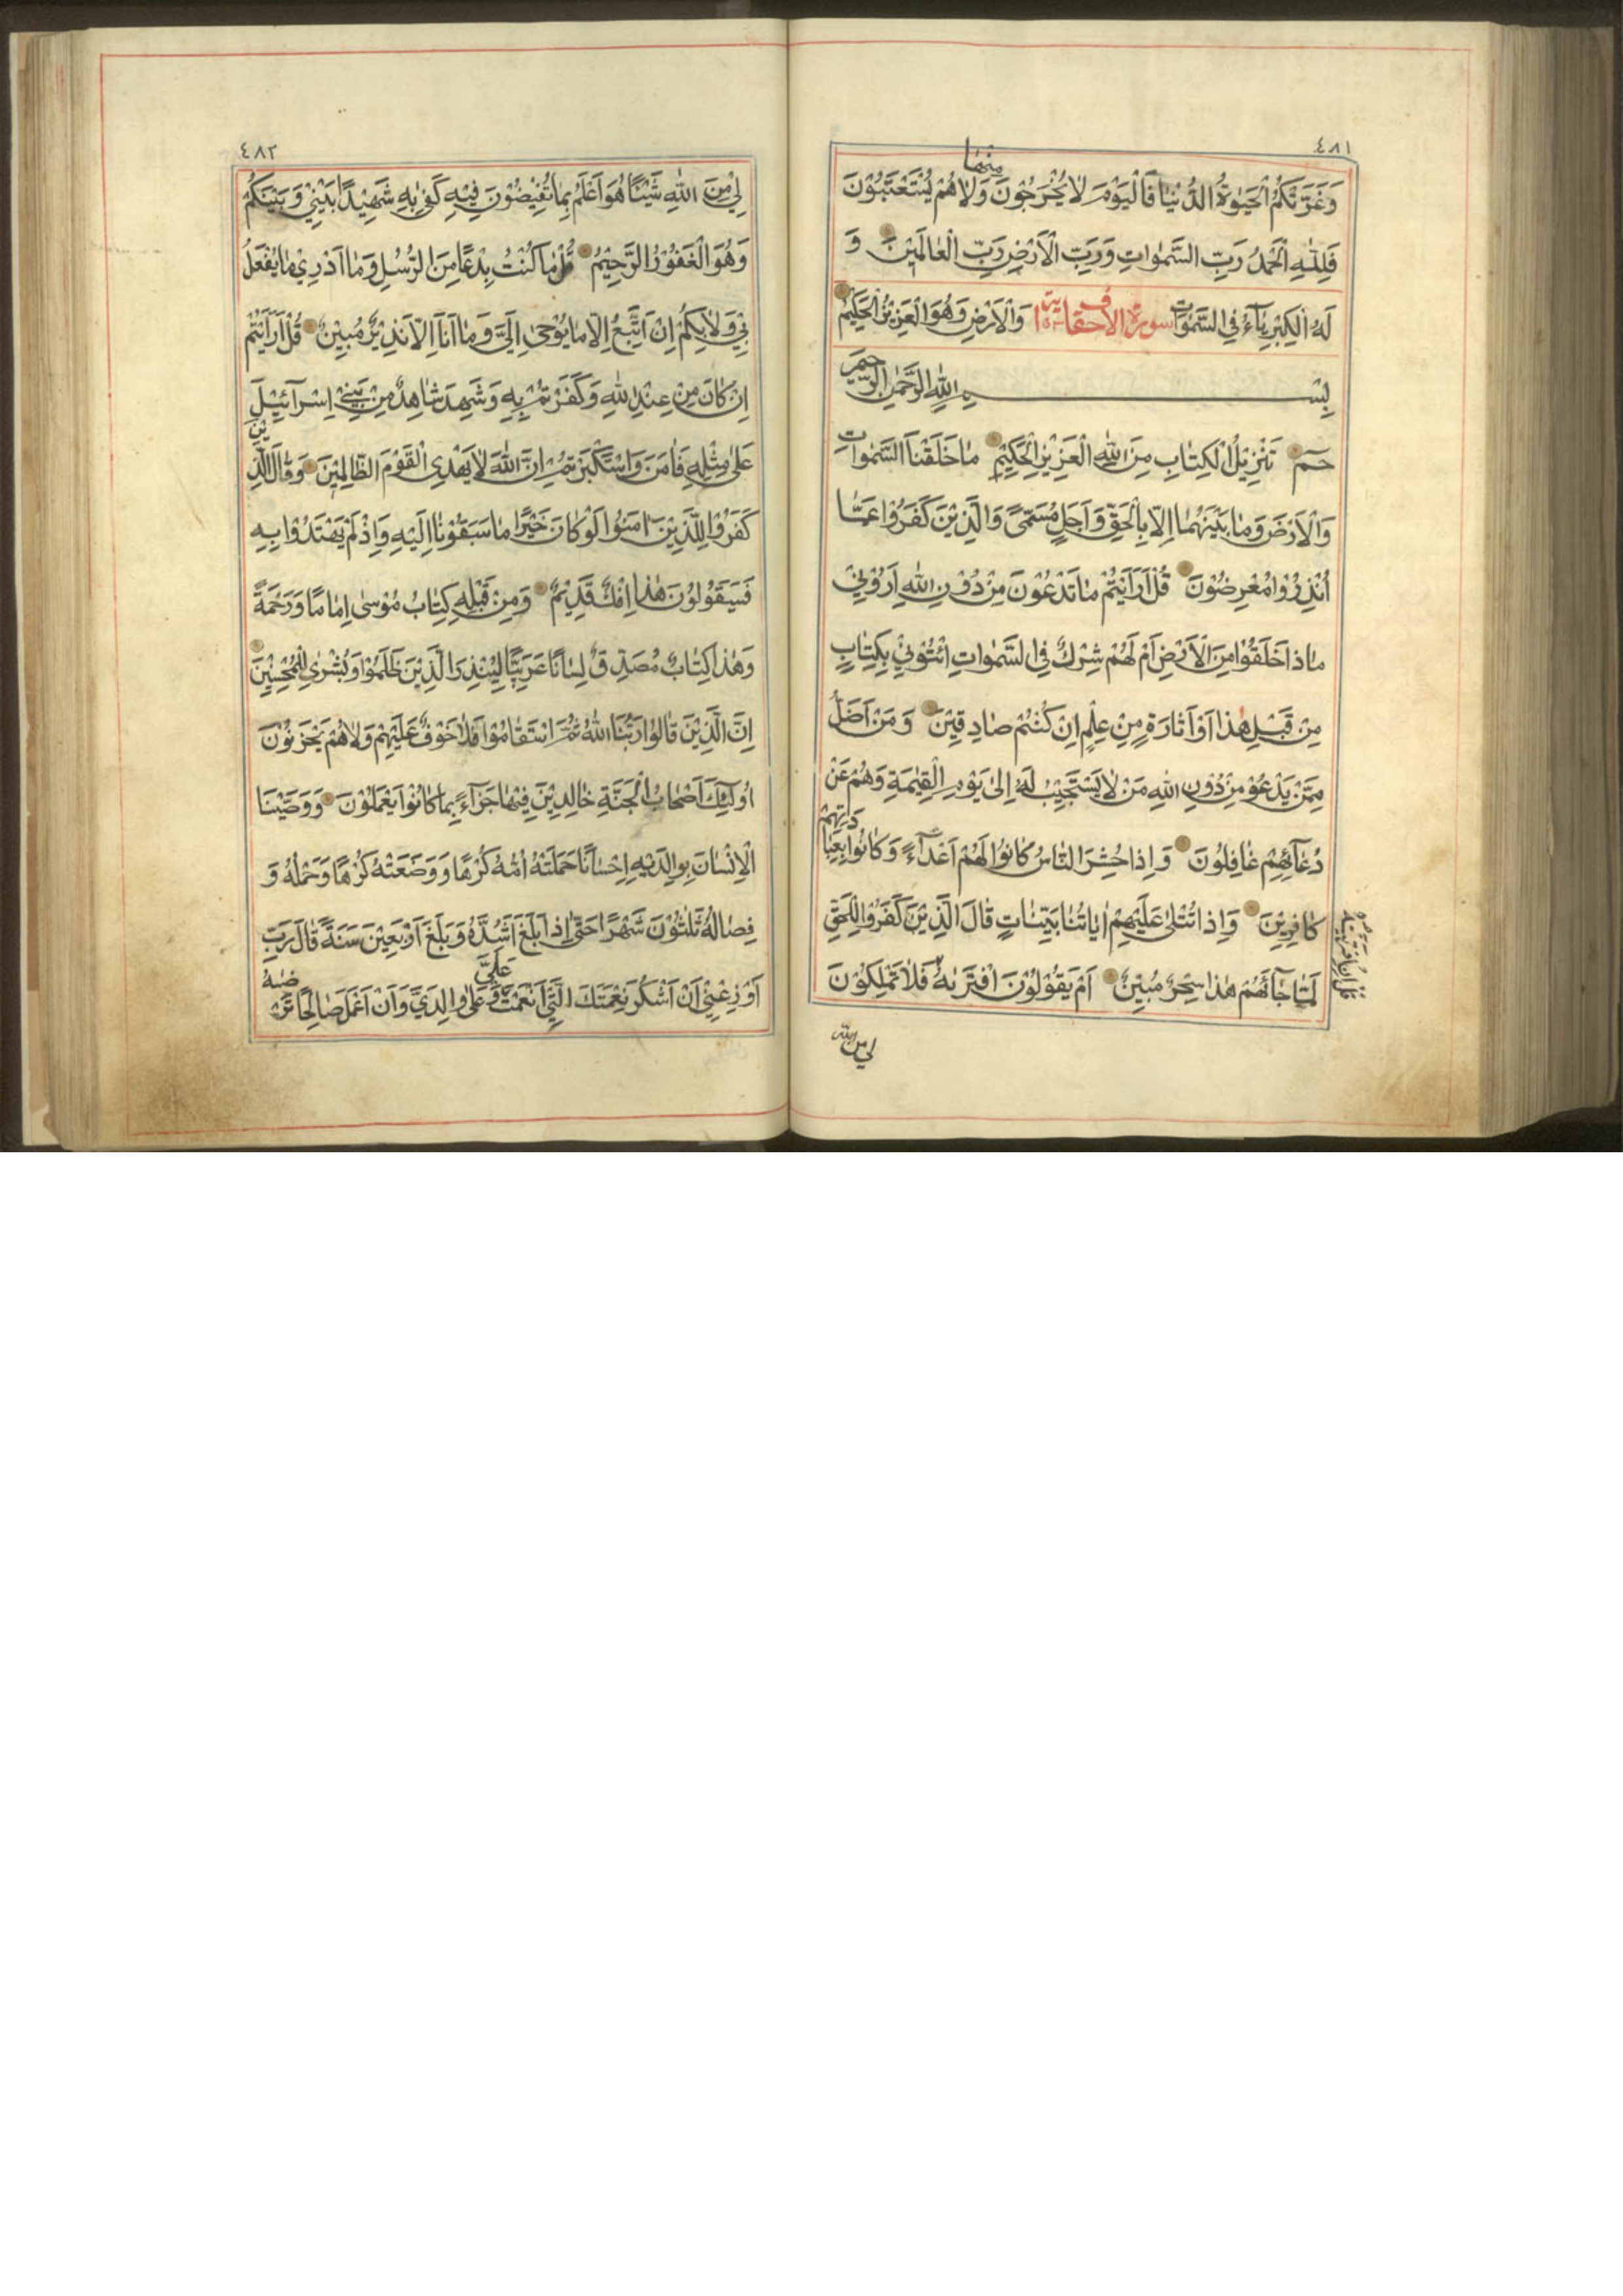 ٤٨١
منها
وَغَرَّتْكُمُ الْحَيٰوةُ الدُّنْيٰا فَالْيَوْمَ لٰا يُخْرَجُوْنَ وَلٰا هُمْ يُسْتَعْتَبُوْنَ
فَلِلّٰهِ الْحَمْدُ رَبِّ السَّمٰوٰاتِ وَرَبِّ الْاَرْضِ رَبِّ الْعٰالَمِيْنَ وَ
لَهُ الْكِبْرِيٰآءُ فِي السَّمٰوٰاتِ سورة الاحقاف وَالْاَرْضِ وَهُوَ الْعَزِيْزُ الْحَكِيْمُ
بِسْــــمِ اللّٰهِ الرَّحْمٰنِ الرَّحِيْمِ
حٰمٓ تَنْزِيْلُ الْكِتٰابِ مِنَ اللّٰهِ الْعَزِيْزِ الْحَكِيْمِ مٰا خَلَقْنَا السَّمٰوٰاتِ
وَالْاَرْضَ وَمٰا بَيْنَهُمٰا اِلّٰا بِالْحَقِّ وَاَجَلٍ مُسَمًّى وَالَّذِيْنَ كَفَرُوْا عَمّٰا
اُنْذِرُوْا مُعْرِضُوْنَ قُلْ اَرَاَيْتُمْ مٰا تَدْعُوْنَ مِنْ دُوْنِ اللّٰهِ اَرُوْنِيْ
مٰاذٰا خَلَقُوْا مِنَ الْاَرْضِ اَمْ لَهُمْ شِرْكٌ فِي السَّمٰوٰاتِ ائْتُوْنِيْ بِكِتٰابٍ
مِنْ قَبْلِ هٰذٰا اَوْ اَثٰارَةٍ مِنْ عِلْمٍ اِنْ كُنْتُمْ صٰادِقِيْنَ وَمَنْ اَضَلُّ
مِمَّنْ يَدْعُوْ مِنْ دُوْنِ اللّٰهِ مَنْ لٰا يَسْتَجِيْبُ لَهُ اِلىٰ يَوْمِ الْقِيٰمَةِ وَهُمْ عَنْ
دُعٰآئِهِمْ غٰافِلُوْنَ وَاِذٰا حُشِرَ النّٰاسُ كٰانُوْا لَهُمْ اَعْدٰآءً وَكٰانُوْا بِعِبٰادَتِهِمْ
كٰافِرِيْنَ وَاِذٰا تُتْلىٰ عَلَيْهِمْ اٰيٰاتُنٰا بَيِّنٰاتٍ قٰالَ الَّذِيْنَ كَفَرُوْا لِلْحَقِّ
لَمّٰا جٰآءَهُمْ هٰذٰا سِحْرٌ مُبِيْنٌ اَمْ يَقُوْلُوْنَ افْتَرٰىهُ فَلٰا تَمْلِكُوْنَ
قُلْ اِنِ افْتَرَيْتُهُ
لي من الله
٤٨٢
لِيْ مِنَ اللّٰهِ شَيْئًا هُوَ اَعْلَمُ بِمٰا تُفِيْضُوْنَ فِيْهِ كَفىٰ بِهِ شَهِيْدًا بَيْنِيْ وَبَيْنَكُمْ
وَهُوَ الْغَفُوْرُ الرَّحِيْمُ قُلْ مٰا كُنْتُ بِدْعًا مِنَ الرُّسُلِ وَمٰا اَدْرِيْ مٰا يُفْعَلُ
بِيْ وَلٰا بِكُمْ اِنْ اَتَّبِعُ اِلّٰا مٰا يُوْحىٰ اِلَيَّ وَمٰا اَنَا اِلّٰا نَذِيْرٌ مُبِيْنٌ قُلْ اَرَاَيْتُمْ
اِنْ كٰانَ مِنْ عِنْدِ اللّٰهِ وَكَفَرْتُمْ بِهِ وَشَهِدَ شٰاهِدٌ مِنْ بَنِيْ اِسْرٰآئِيْلَ
عَلىٰ مِثْلِهِ فَاٰمَنَ وَاسْتَكْبَرْتُمْ اِنَّ اللّٰهَ لٰا يَهْدِي الْقَوْمَ الظّٰالِمِيْنَ وَقٰالَ الَّذِيْنَ
كَفَرُوْا لِلَّذِيْنَ اٰمَنُوْا لَوْ كٰانَ خَيْرًا مٰا سَبَقُوْنٰا اِلَيْهِ وَاِذْ لَمْ يَهْتَدُوْا بِهِ
فَسَيَقُوْلُوْنَ هٰذٰا اِفْكٌ قَدِيْمٌ وَمِنْ قَبْلِهِ كِتٰابُ مُوْسىٰ اِمٰامًا وَرَحْمَةً
وَهٰذٰا كِتٰابٌ مُصَدِّقٌ لِسٰانًا عَرَبِيًّا لِيُنْذِرَ الَّذِيْنَ ظَلَمُوْا وَبُشْرىٰ لِلْمُحْسِنِيْنَ
اِنَّ الَّذِيْنَ قٰالُوْا رَبُّنَا اللّٰهُ ثُمَّ اسْتَقٰامُوْا فَلٰا خَوْفٌ عَلَيْهِمْ وَلٰا هُمْ يَحْزَنُوْنَ
اُولٰٓئِكَ اَصْحٰابُ الْجَنَّةِ خٰالِدِيْنَ فِيْهٰا جَزٰآءً بِمٰا كٰانُوْا يَعْمَلُوْنَ وَوَصَّيْنَا
الْاِنْسٰانَ بِوٰالِدَيْهِ اِحْسٰانًا حَمَلَتْهُ اُمُّهُ كُرْهًا وَوَضَعَتْهُ كُرْهًا وَحَمْلُهُ وَ
فِصٰالُهُ ثَلٰثُوْنَ شَهْرًا حَتّٰى اِذٰا بَلَغَ اَشُدَّهُ وَبَلَغَ اَرْبَعِيْنَ سَنَةً قٰالَ رَبِّ
اَوْزِعْنِيْ اَنْ اَشْكُرَ نِعْمَتَكَ الَّتِيْ اَنْعَمْتَ عَلَيَّ وَعَلىٰ وٰالِدَيَّ وَاَنْ اَعْمَلَ صٰالِحًا تَرْضٰىهُ